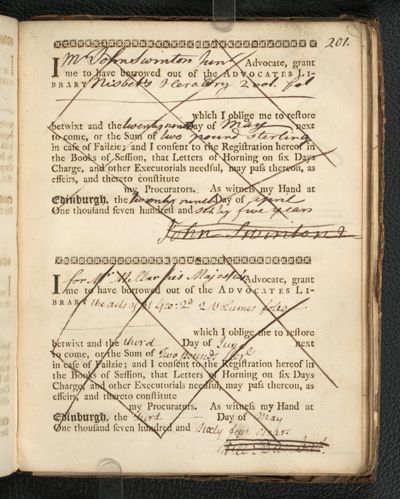 201.
I Mr John Swinton Junr Advocate, grant
me to have borrowed out of the ADVOCATES LI-
BRARY Nisbets Heraldry 2 vol. fol
which I oblige me to restore
betwixt and the twenty ninth Day of May next
to come, or the Sum of two pound Sterling
in case of Failzie; and I consent to the Registration hereof in
the Books of Session, that Letters of Horning on six Days
Charge, and other Executorials needful, may pass thereon, as
effeirs, and thereto constitute
my Procurators. As witness my Hand at
Edinburgh, the twenty ninth Day of April
One thousand seven hundred and sixty five years
John Swinton
I for Mr Millar his Majesties Advocate, grant
me to have borrowed out of the ADVOCATES LI-
BRARY the acts of Geo: 2d 2 Volumes folio
which I oblige me to restore
betwixt and the third Day of July next
to come, or the Sum of two pound
in case of Failzie; and I consent to the Registration hereof in
the Books of Session, that Letters of Horning on six Days
Charge, and other Executorials needful, may pass thereon, as
effeirs, and thereto constitute
my Procurators. As witness my Hand at
Edinburgh, the third Day of May
One thousand seven hundred and sixty five years